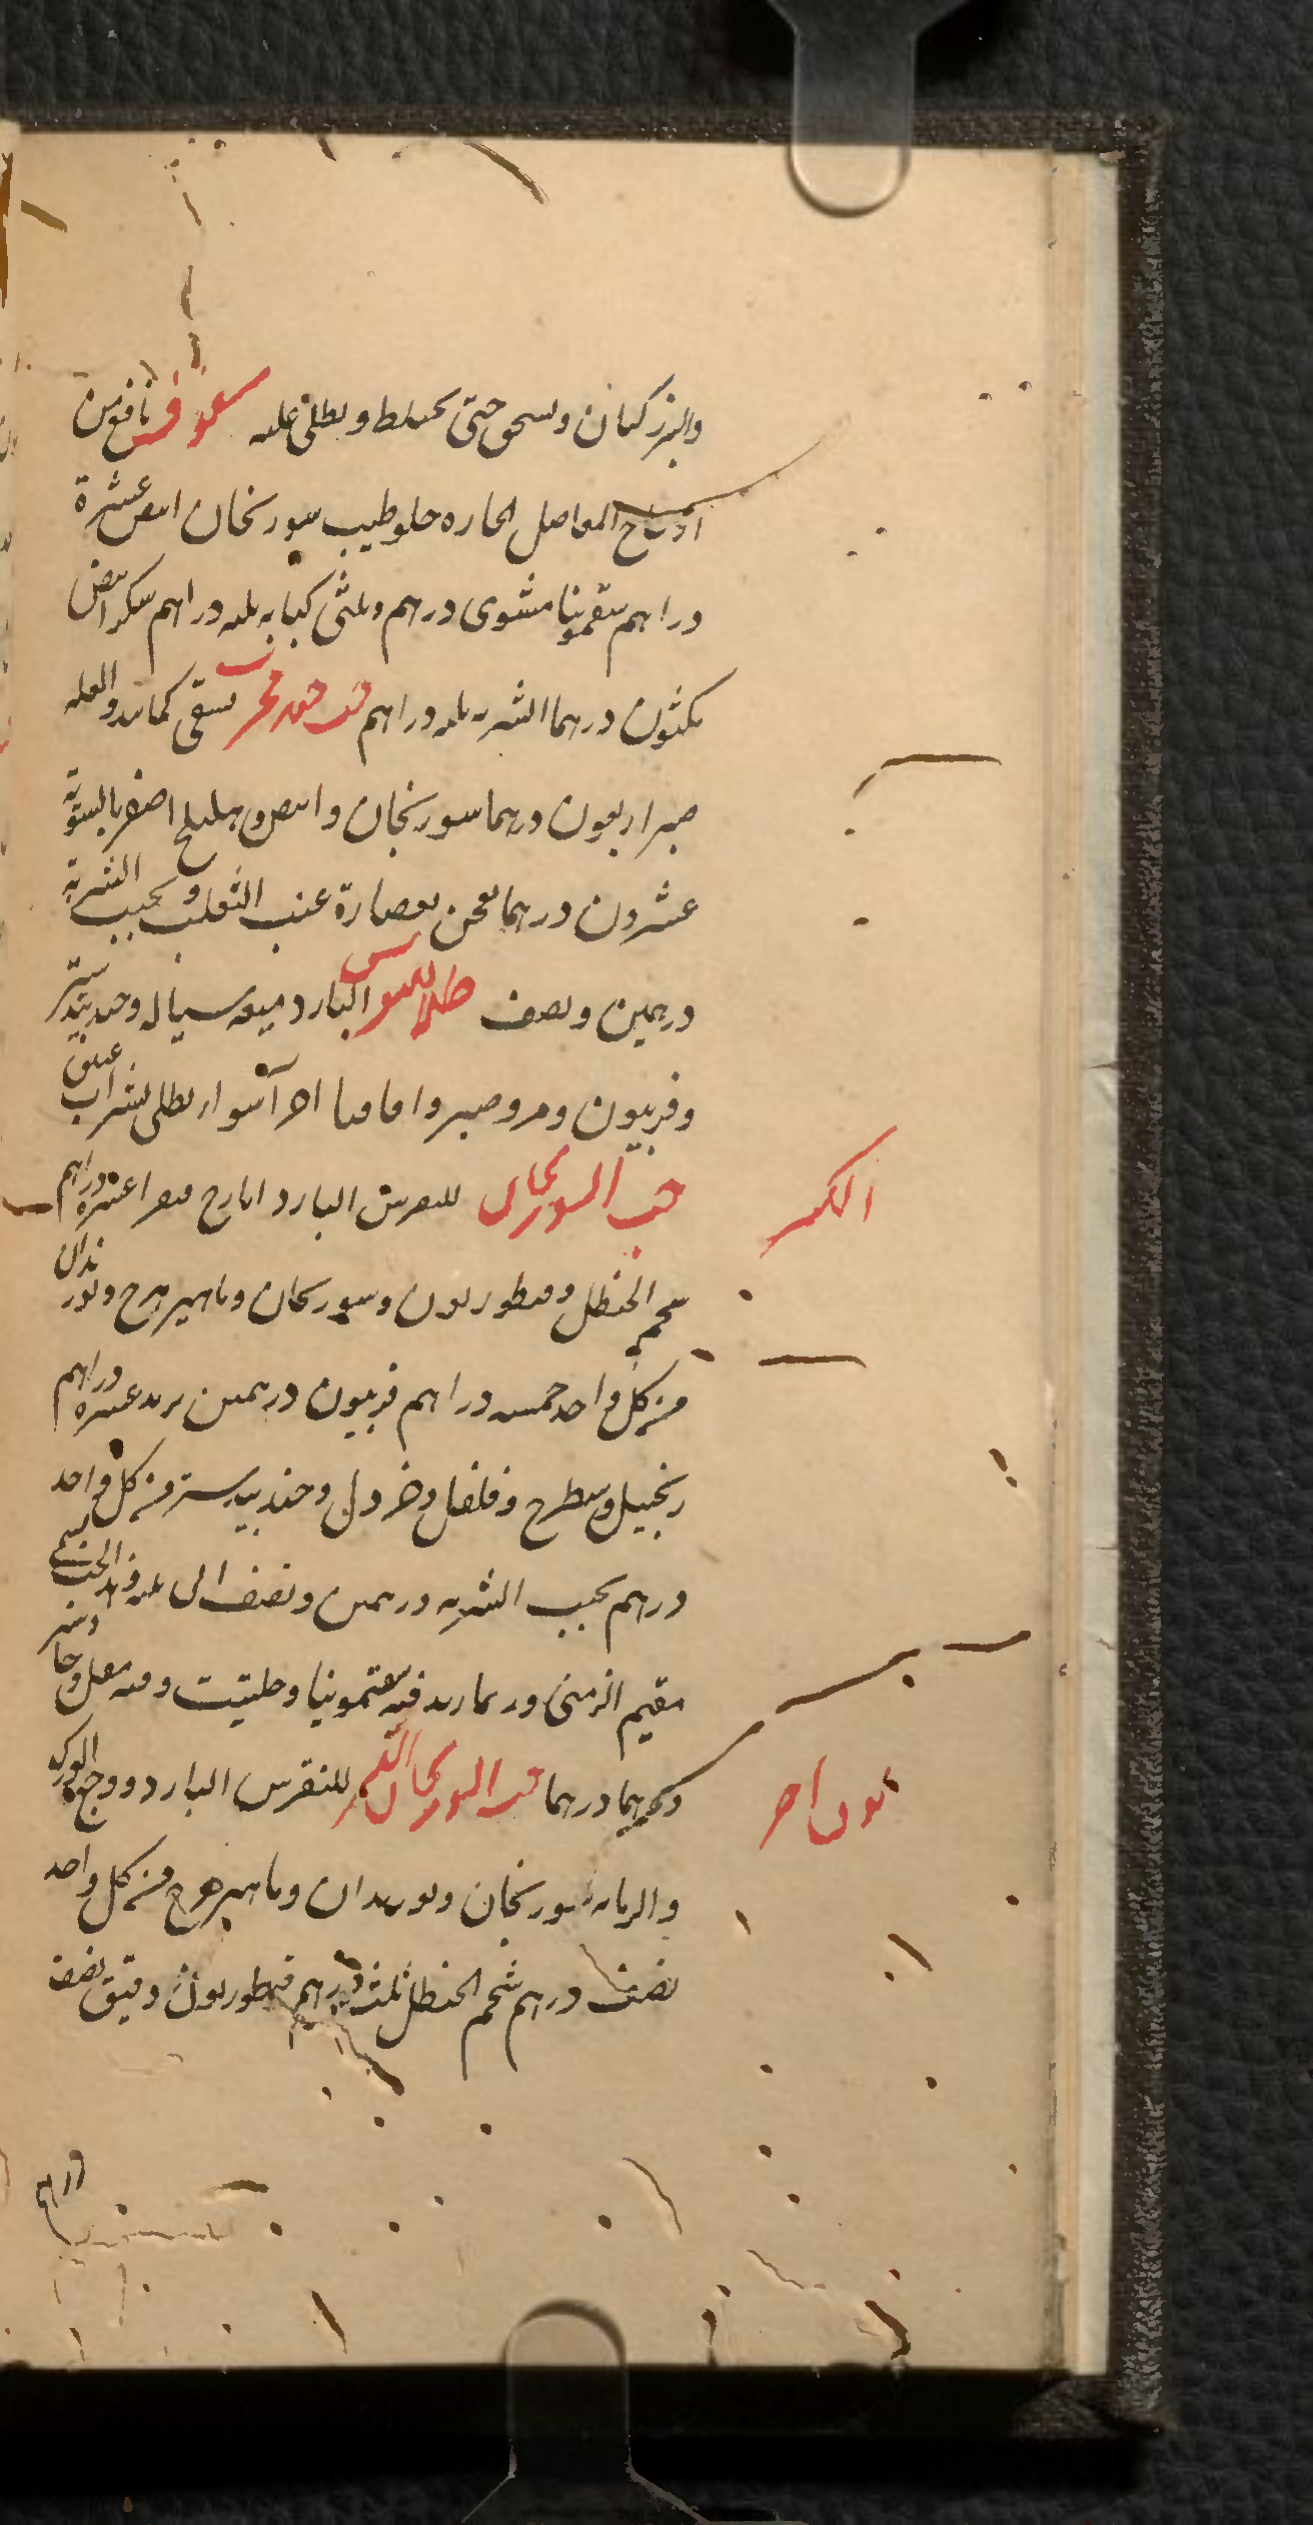 والبزر كتان ويسحق حتى يختلط ويطلى عليه سفوف نافع من
اوجاع المفاصل الحاره حلو طيب سورنجان ابيض عشرة
دراهم سقمونيا مشوى درهم وثلثى كبابه ثلثه دراهم سكر ابيض
ثلثون درهما الشربه ثلثه دراهم حب جيد مجرب يسقى كما تبدو العله
صبر اربعون درهما سورنجان وابيض وهليلج اصفر بالسوية
عشرون درهما يعجن بعصارة عنب الثعلب ويحبب الشربة
درهمين ونصف طلا للنقرس البارد ميعه سياله وجندبيدستر
وفربيون ومر وصبر واقاقيا اجزآ سوا ويطلى بشراب عتيق
حب السورنجان الكبير للنقرس البارد ايارج فيقرا عشره دراهم
شحم الحنظل وقنطوريون وسورنجان وماهيزهرج وبوزيدان
من كل واحد خمسه دراهم فربيون درهمين تربد عشره دراهم
زنجبيل وشيطرج وفلفل وخردل وجندبيدستر من كل واحد
درهم يحبب الشربه درهمين ونصف الى ثلثه وهذا الحب يسمى
مقيم الزمنى وربما زيد فيه سقمونيا وحلتيت ومنه مقل وجاوشير
درهما درهما حب السورنجان للنقرس البارد ووجع الورك
سورنجان وبوزيدان وماهيزهرج من كل واحد
نصف درهم شحم الحنظل ثلث درهم قنطوريون دقيق نصف
درهم